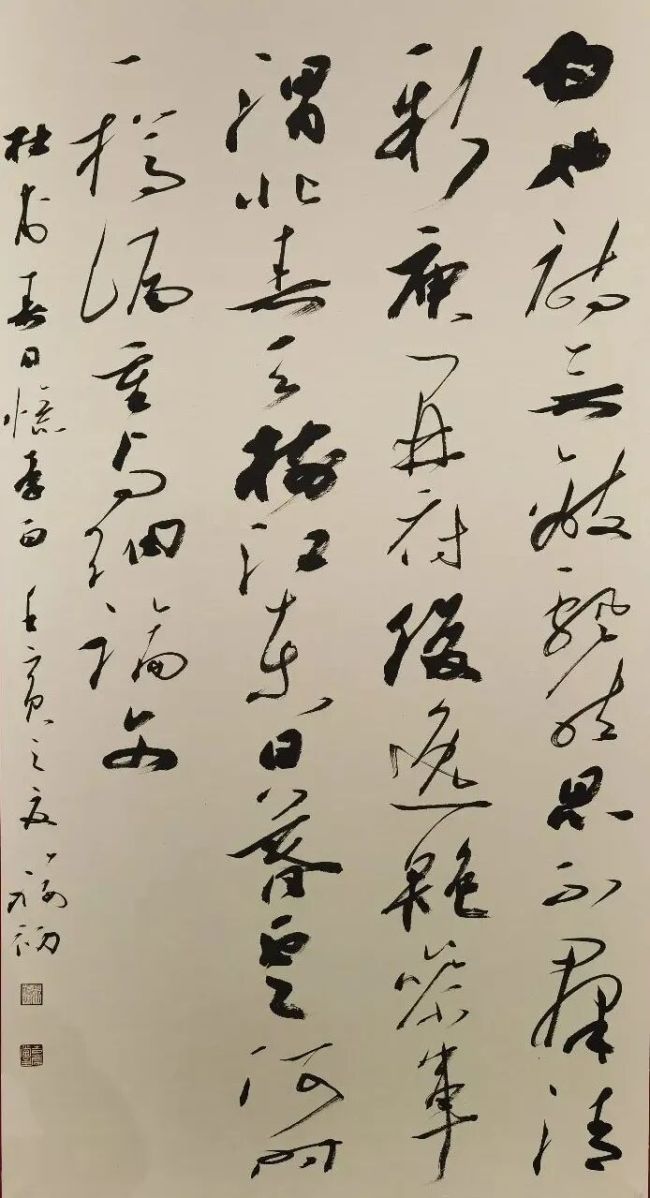 白也詩無敵飄然思不群清
新庾開府俊逸鮑參軍
渭北春天樹江東日暮雲何時
一樽酒重與細論文
杜甫春日憶李白 壬寅之夏 福初